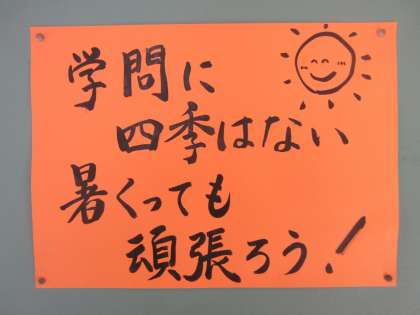 学問に
四季はない
暑くっても
頑張ろう!